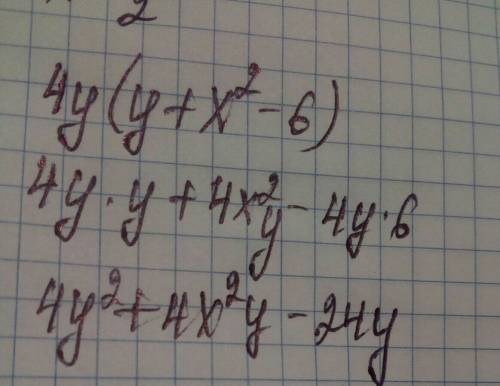 2
4y(y+x²-6)
4y·y+4x²y-4y·6
4y²+4x²y-24y